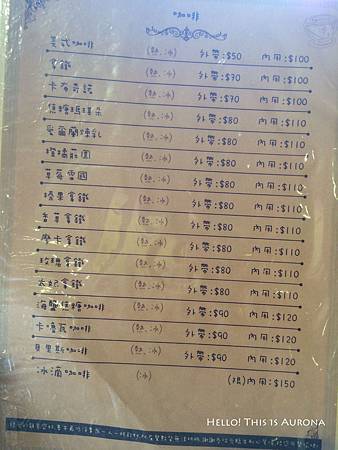 咖啡
美式咖啡 (熱.冰) 外帶:$50 內用:$100
拿鐵 (熱.冰) 外帶:$70 內用:$100
卡布奇諾 (熱.冰) 外帶:$70 內用:$100
焦糖瑪琪朵 (熱.冰) 外帶:$80 內用:$110
愛爾蘭煉乳 (熱.冰) 外帶:$80 內用:$110
莊園 (熱.冰) 外帶:$80 內用:$110
草莓雪國 (熱.冰) 外帶:$80 內用:$110
榛果拿鐵 (熱.冰) 外帶:$80 內用:$110
香草拿鐵 (熱.冰) 外帶:$80 內用:$110
摩卡拿鐵 (熱.冰) 外帶:$80 內用:$110
拿鐵 (熱.冰) 外帶:$80 內用:$110
太妃拿鐵 (熱.冰) 外帶:$80 內用:$110
海鹽焦糖咖啡 (熱.冰) 外帶:$90 內用:$120
卡嚕哇咖啡 (熱.冰) 外帶:$90 內用:$120
貝里斯咖啡 (熱.冰) 外帶:$90 內用:$120
冰滴咖啡 (冰) (限)內用:$150
HELLO! THIS IS AURONA